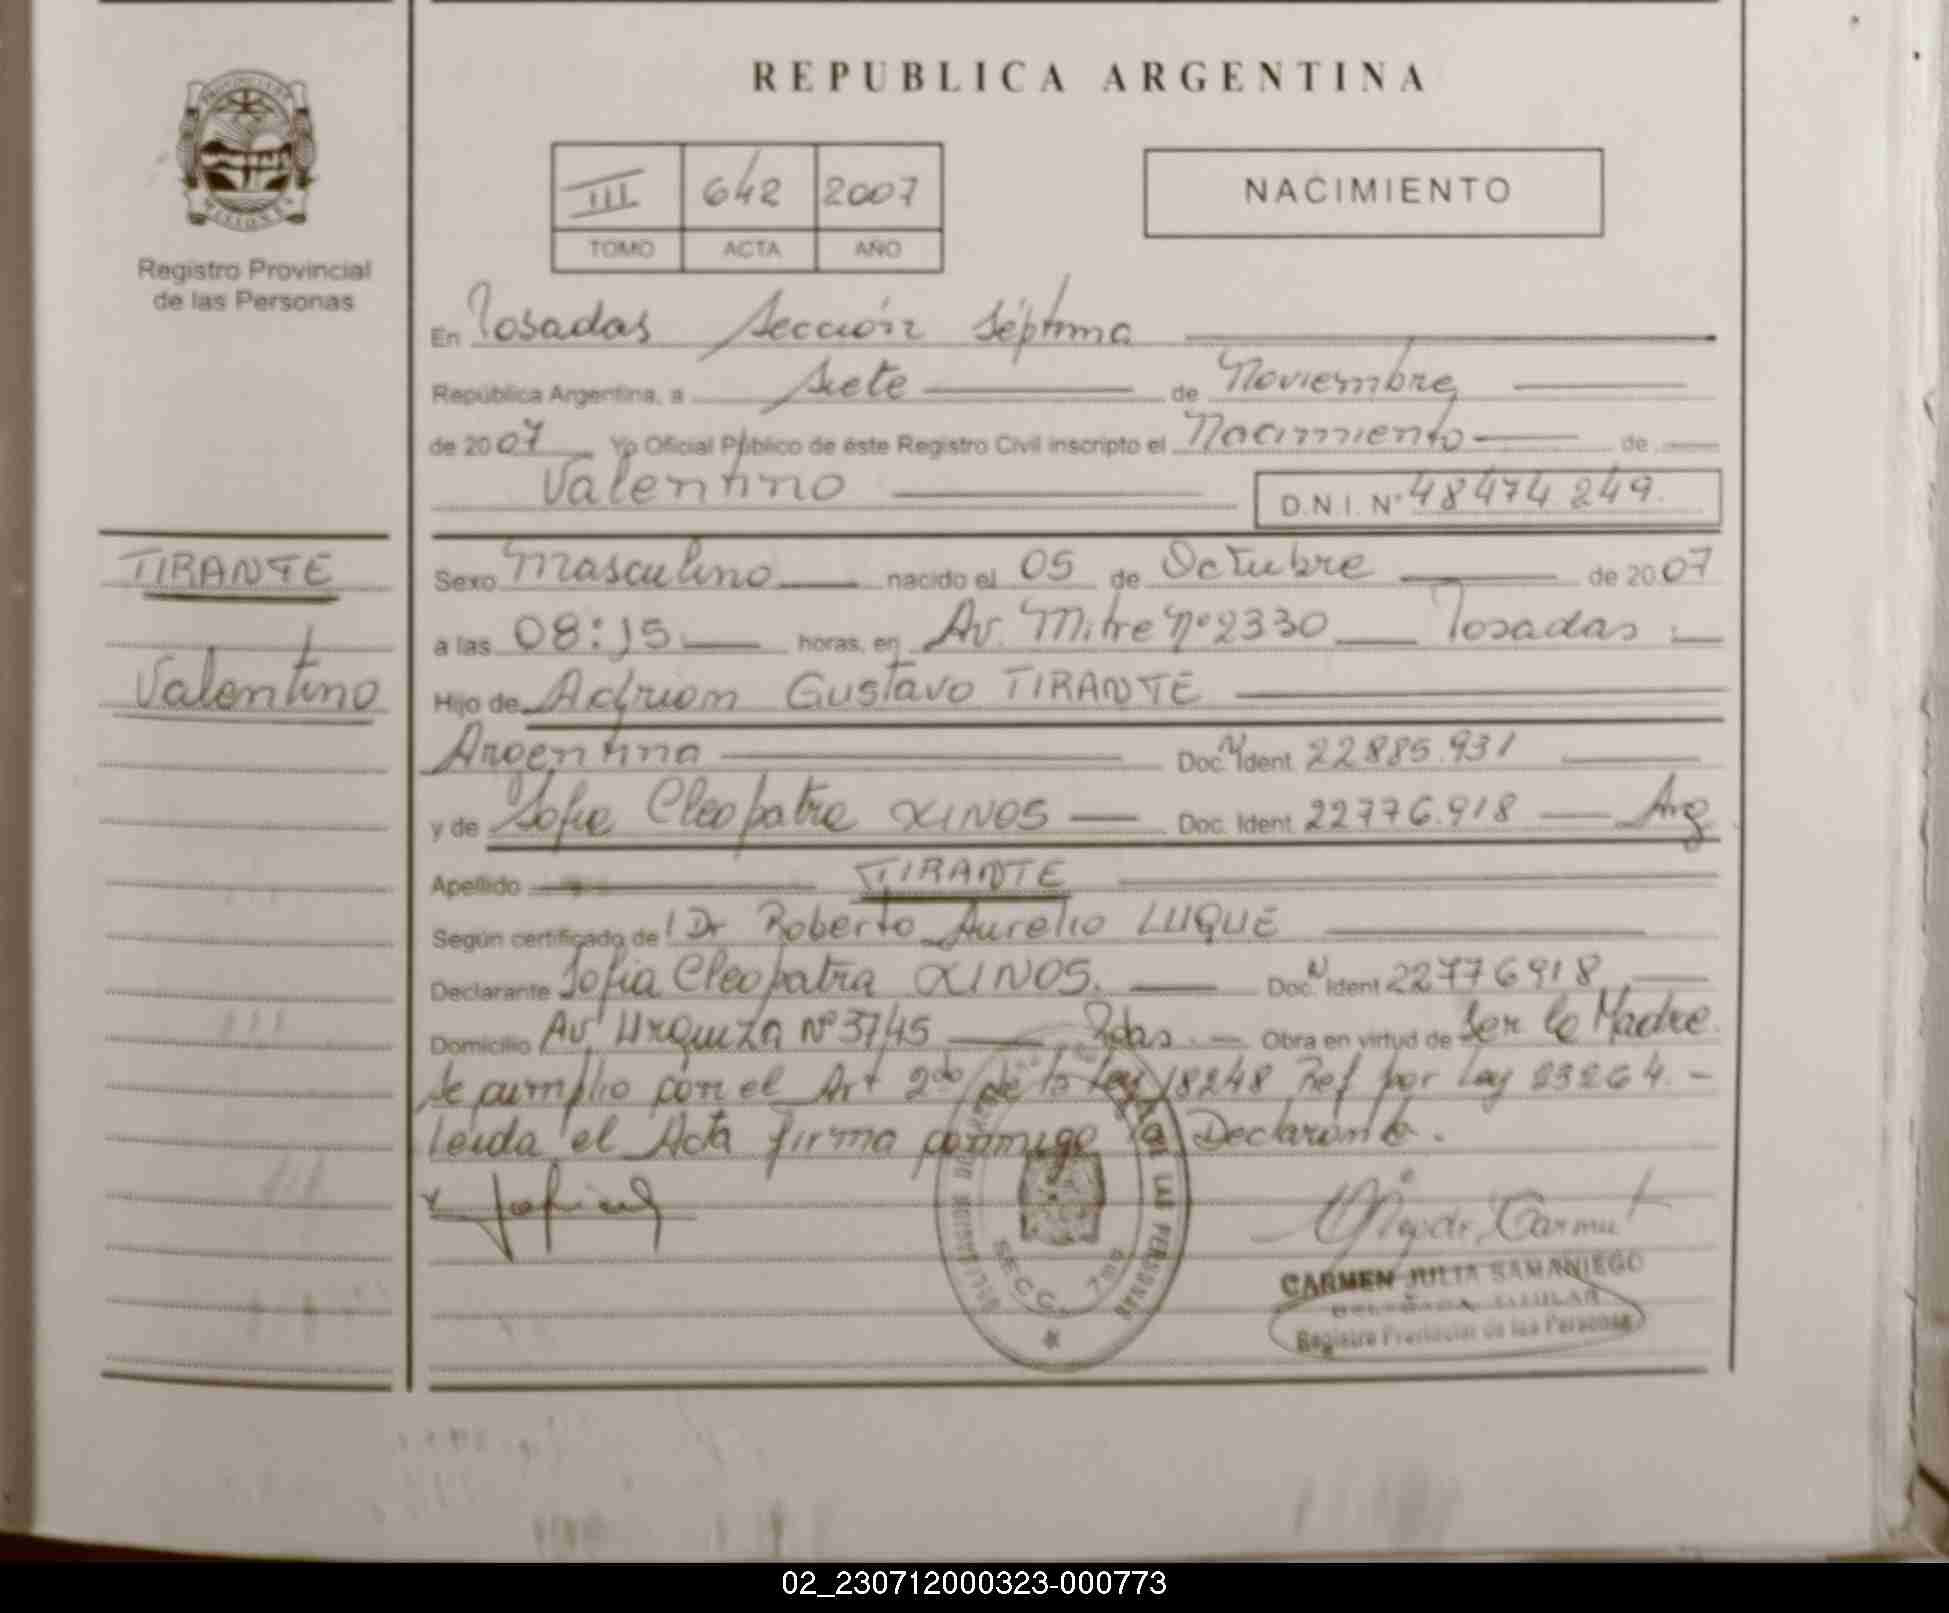 REPUBLICA ARGENTINA
III 642 2007
TOMO ACTA AÑO
NACIMIENTO
Registro Provincial
de las Personas
En Posadas Sección Séptima
República Argentina, a siete de Noviembre
de 2007 Yo Oficial Público de éste Registro Civil inscripto el Nacimiento de
Valentino D.N.I. Nº 48474.249.
TIRANTE
Valentino
Sexo Masculino nacido el 05 de Octubre de 2007
a las 08:15 horas, en Av. Mitre Nº 2330 Posadas
Hijo de Adrian Gustavo TIRANTE
Argentina Doc. N Ident. 22885.931
y de Sofia Cleopatra XINOS Doc. Ident. 22776.918 Arg
Apellido TIRANTE
Según certificado de Dr Roberto Aurelio LUQUE
Declarante Sofia Cleopatra XINOS. Doc. N Ident 22776918
Domicilio Av. Urquiza Nº 3745 Pdas. Obra en virtud de Ser la Madre.
Se cumplio con el Art 2do de la Ley 18248 Ref por Ley 23264. -
Leida el Acta firma conmigo la Declarante.
SECC. 7ma
DE LAS PERSONAS
CARMEN JULIA SAMANIEGO
DELEGADA TITULAR
Registro Provincial de las Personas
02_230712000323-000773